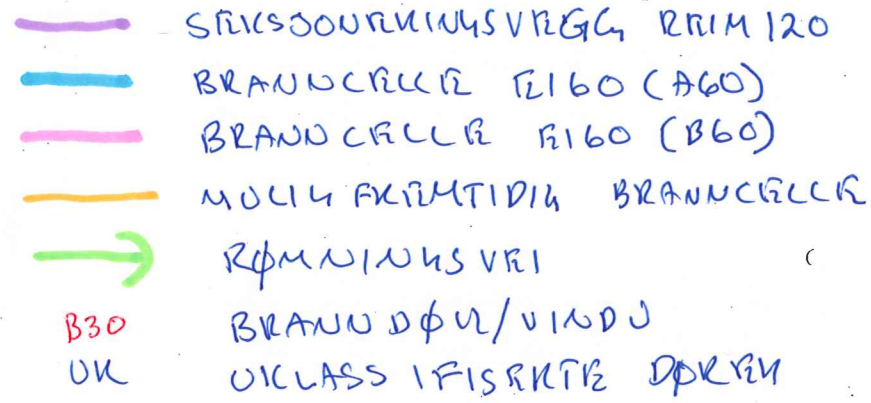 SEKSJONERINGSVEGG REIM 120
BRANNCELLE EI60 (A60)
BRANNCELLE EI60 (B60)
MULIG FREMTIDIG BRANNCELLE
RØMNINGSVEI
B30 BRANNDØR/VINDU
UK UKLASSIFISERTE DØRER